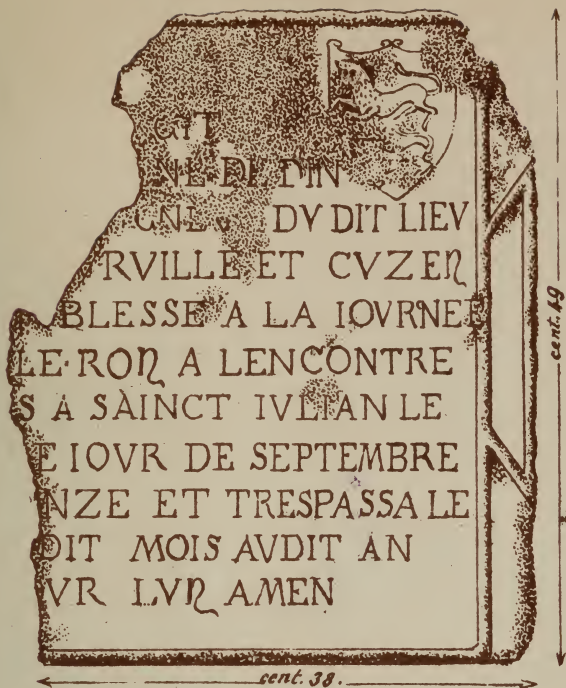 GIT
NE DE DIN
GNEV DV DIT LIEV
RVILLE ET CVZEN
BLESSE A LA IOVRNEE
LE·RON A LENCONTRE
S A SAINCT IVLIAN LE
E IOVR DE SEPTEMBRE
NZE ET TRESPASSA LE
DIT MOIS AVDIT AN
VR LVN AMEN
cent. 49
cent. 38.